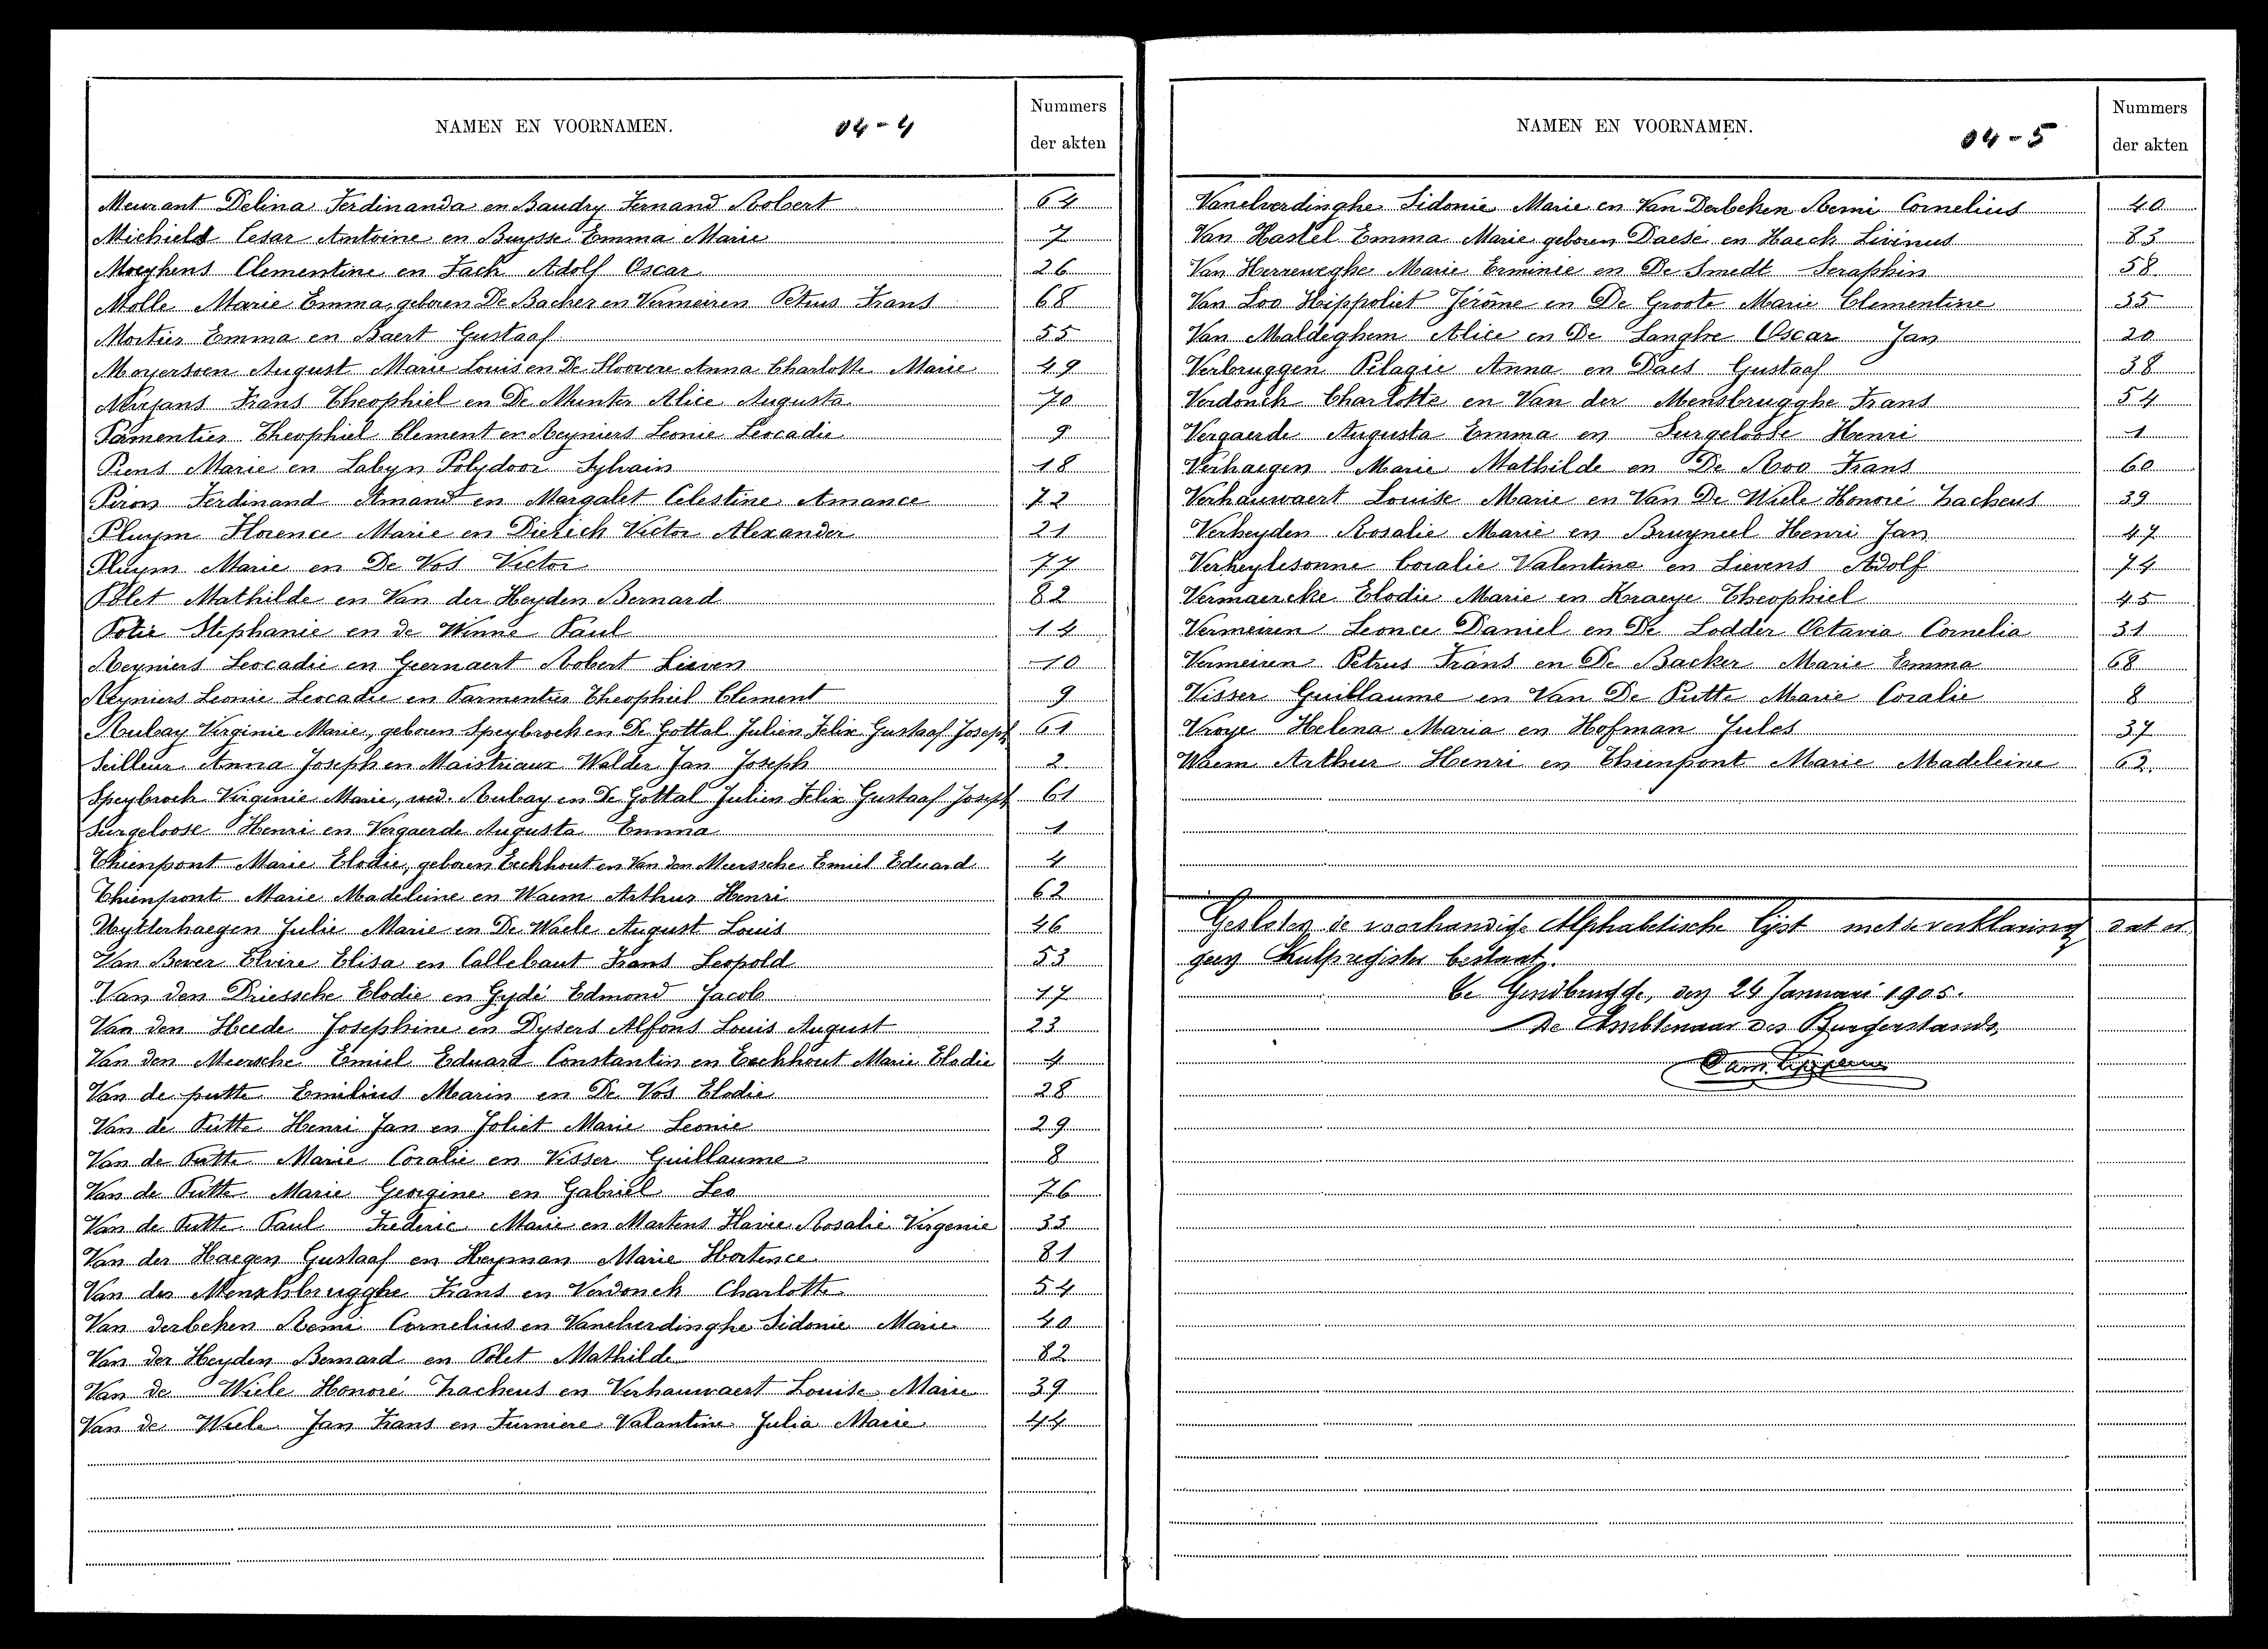 NAMEN EN VOORNAMEN. 04-4 Nummers der akten
Meurant Delina Ferdinanda en Baudry Fernand Robert 64
Michiels Cesar Antoine en Buysse Emma Marie 7
Moeykens Clementine en Jach Adolf Oscar 26
Molle Marie Emma, geboren De Backer en Vermeiren Petrus Frans 68
Mortier Emma en Baert Gustaaf 55
Moyersoen August Marie Louis en De Hoovere Anna Charlotte Marie 49
Neirjans Frans Theophiel en De Munter Alice Augusta 70
Parmentier Theophiel Clement en Reyniers Leonie Leocadie 9
Piens Marie en Labyn Polydoor Sylvain 18
Piron Ferdinand Amand en Margalet Celestine Amance 72
Pluym Florence Marie en Dierick Victor Alexander 21
Pluym Marie en De Vos Victor 77
Polet Mathilde en Van der Heyden Bernard 82
Potie Stephanie en de Winne Paul 14
Reyniers Leocadie en Geernaert Robert Lieven 10
Reyniers Leonie Leocadie en Parmentier Theophiel Clement 9
Rubay Virginie Marie, geboren Speybrock en De Gottal Julien Felix Gustaaf Joseph 61
Seilleur Anna Joseph en Maistriaux Walder Jan Joseph 2
Speybrock Virginie Marie, wed. Rubay en De Gottal Julien Felix Gustaaf Joseph 61
Surgeloose Henri en Vergaerde Augusta Emma 1
Thienpont Marie Elodie, geboren Eeckhout en Van den Meerssche Emiel Eduard 4
Thienpont Marie Madeleine en Waem Arthur Henri 62
Uytterhaegen Julie Marie en De Waele August Louis 46
Van Bever Elvire Elisa en Callebaut Frans Leopold 53
Van den Driessche Elodie en Gydé Edmond Jacob 17
Van den Heede Josephine en Dysers Alfons Louis August 23
Van den Meersche Emiel Eduard Constantin en Eeckhout Marie Elodie 4
Van de putte Emilius Marin en De Vos Elodie 28
Van de Putte Henri Jan en Joliet Marie Leonie 29
Van de Putte Marie Coralie en Visser Guillaume 8
Van de Putte Marie Georgine en Gabriel Leo 76
Van de Putte Paul Frederic Marie en Martens Flavie Rosalie Virgenie 33
Van der Haegen Gustaaf en Heyman Marie Hortence 81
Van der Menschbrugghe Frans en Verdonck Charlotte 54
Van derbeken Remi Cornelius en Vanelverdinghe Sidonie Marie 40
Van der Heyden Bernard en Polet Mathilde 82
Van de Wiele Honoré Zacheus en Verhauwaert Louise Marie 39
Van de Wiele Jan Frans en Furniere Valantine Julia Marie 44
NAMEN EN VOORNAMEN. 04-5 Nummers der akten
Vanelverdinghe Sidonie Marie en Van Derbeken Remi Cornelius 40
Van Hastel Emma Marie geboren Daese en Haeck Livinus 83
Van Herreweghe Marie Erminie en De Smedt Seraphin 58
Van Loo Hippoliet Jérôme en De Groote Marie Clementine 35
Van Maldeghem Alice en De Langhe Oscar Jan 20
Verbruggen Pelagie Anna en Daes Gustaaf 38
Verdonck Charlotte en Van der Mensbrugghe Frans 54
Vergaerde Augusta Emma en Surgeloose Henri 1
Verhaegen Marie Mathilde en De Roo Frans 60
Verhauwaert Louise Marie en Van De Wiele Honoré Zacheus 39
Verheyden Rosalie Marie en Bruyneel Henri Jan 47
Verheylesonne Coralie Valentine en Lievens Adolf 74
Vermaercke Elodie Marie en Kraeye Theophiel 45
Vermeiren Leonce Daniel en De Lodder Octavia Cornelia 31
Vermeiren Petrus Frans en De Backer Marie Emma 68
Visser Guillaume en Van De Putte Marie Coralie 8
Vroye Helena Maria en Hofman Jules 37
Waem Arthur Henri en Thienpont Marie Madeleine 62
Gesloten de voorhandige Alphabetische lyst met de verklaring dat er
geen hulpregister bestaat.
Te Gendbrugge, den 24 Januari 1905.
De Ambtenaar des Burgerstands,